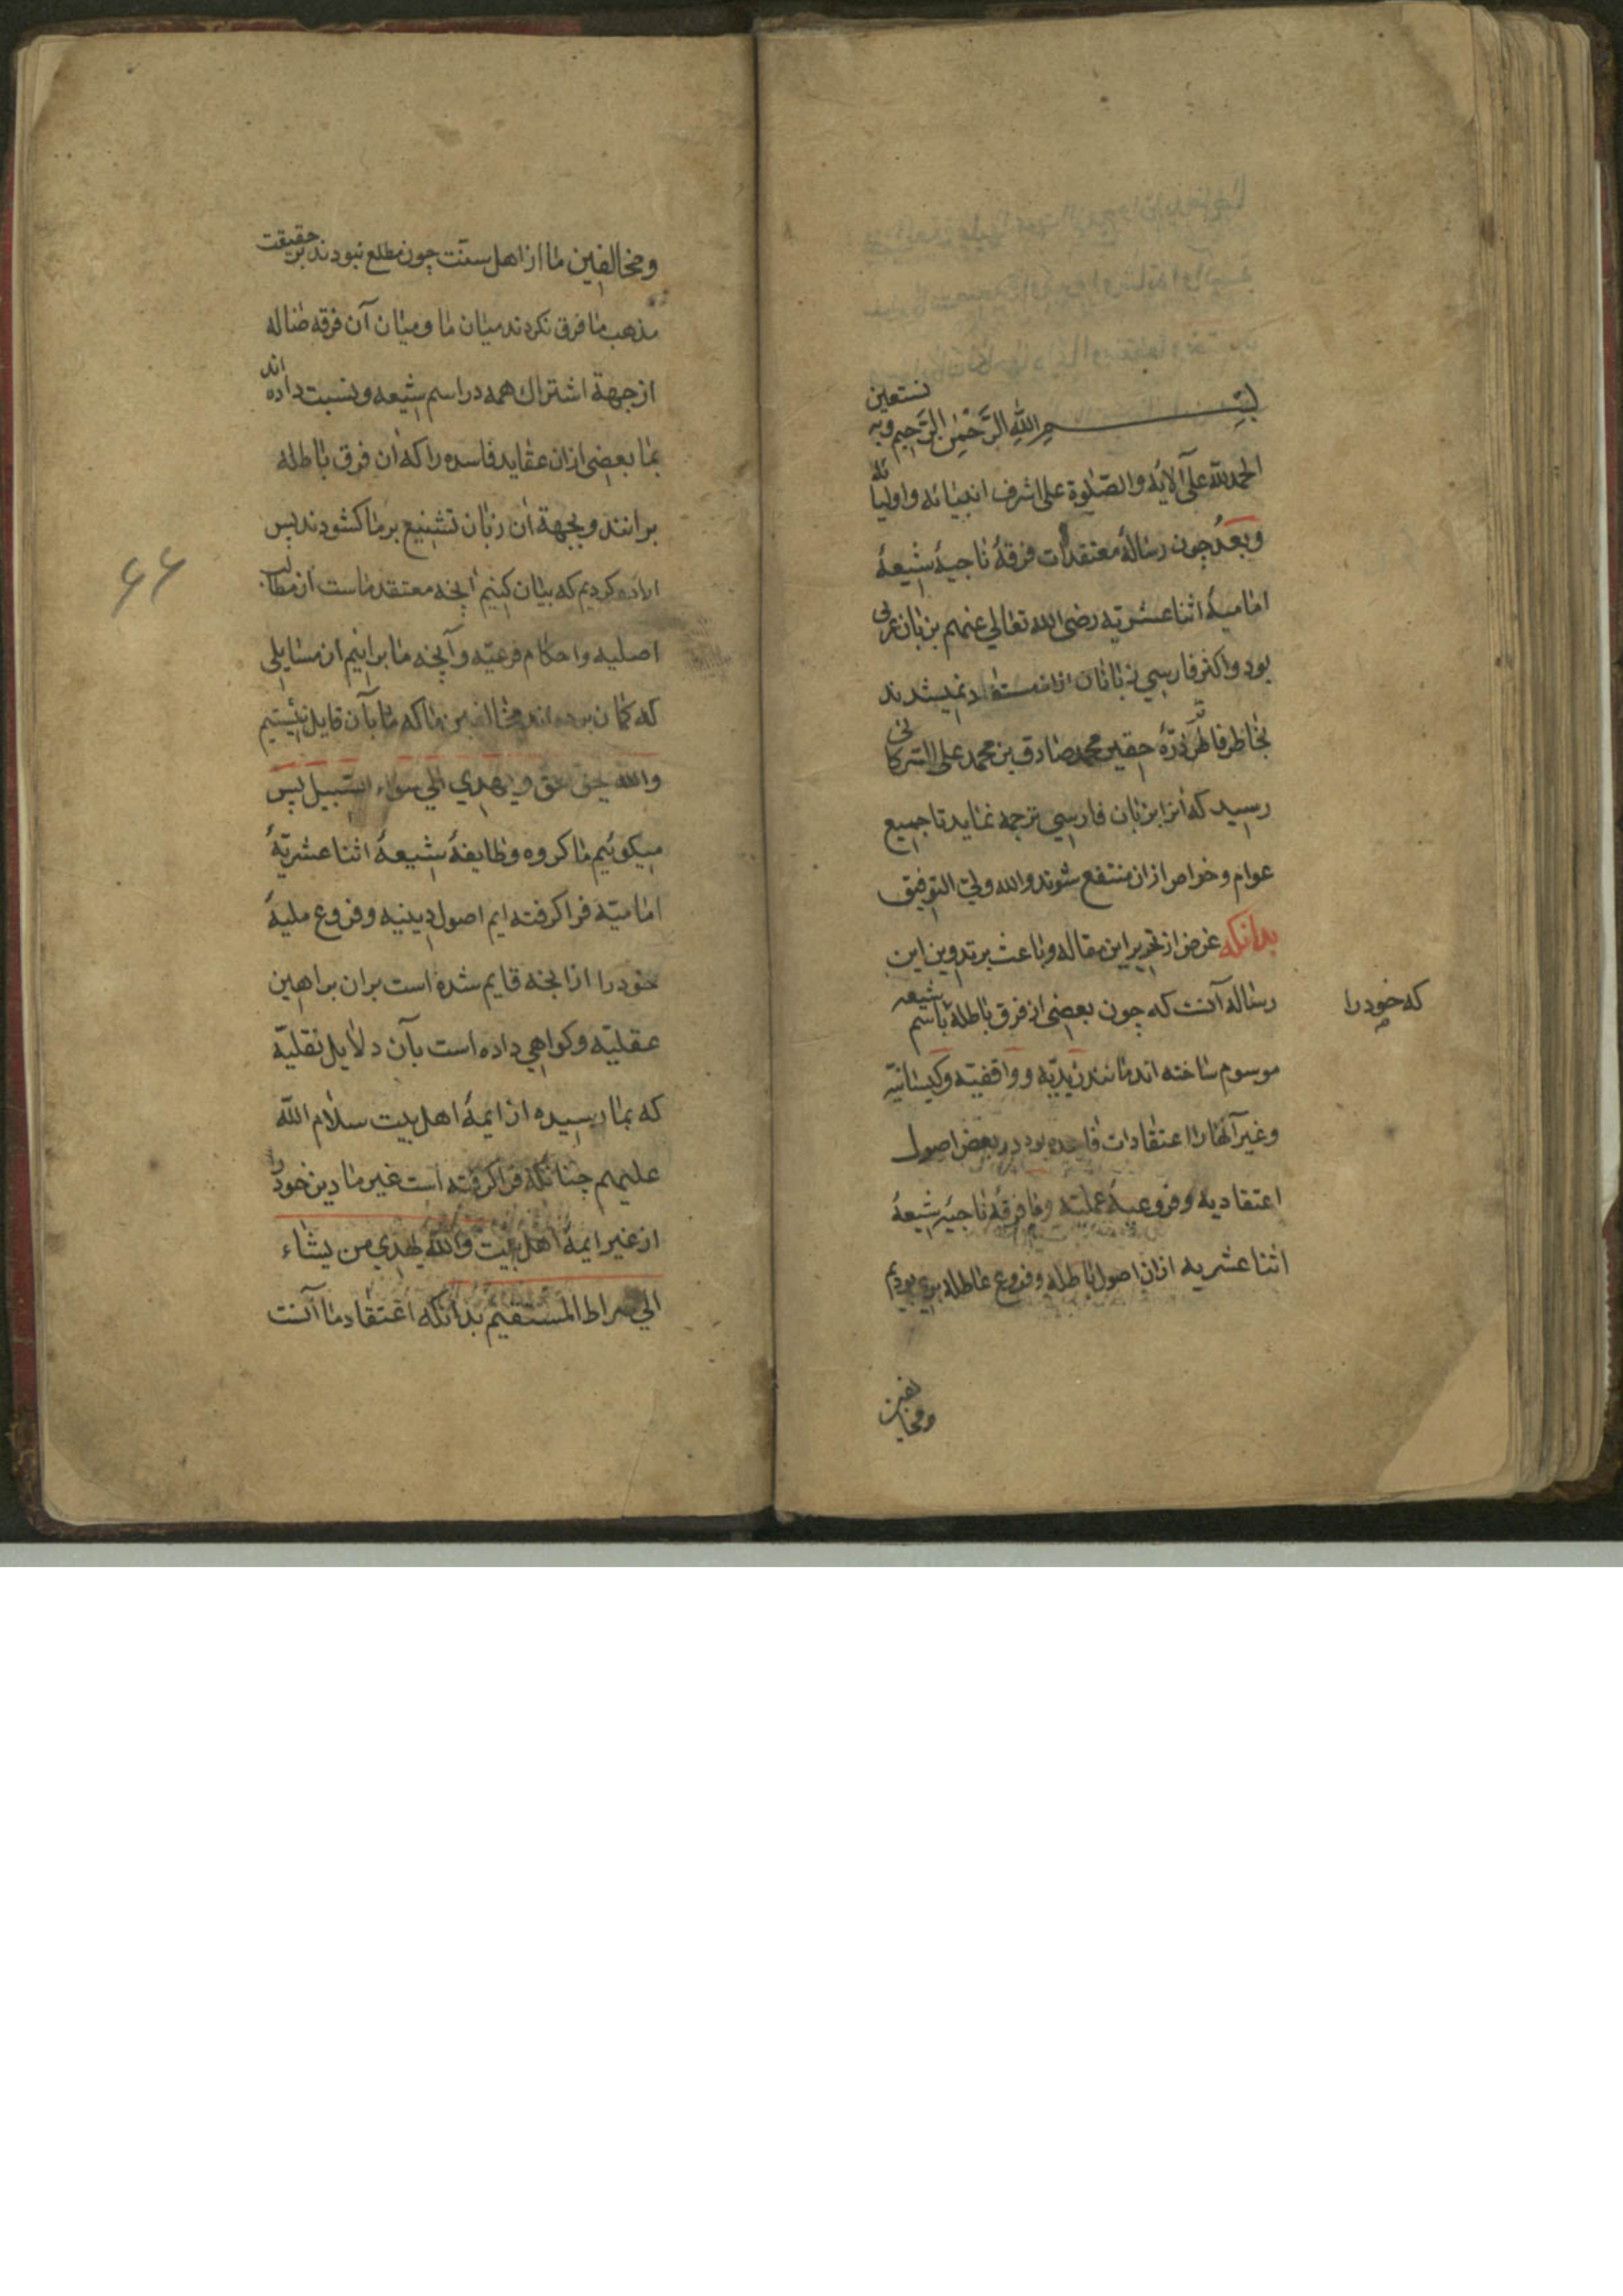 بسم الله الرحمن الرحیم وبه نستعین
الحمدلله علی آلائه والصلوة علی اشرف انبیائه واولیائه
وبعد چون رسالهٔ معتقدات فرقهٔ ناجیهٔ شیعهٔ
امامیهٔ اثناعشریه رضی الله تعالی عنهم بزبان عربی
بود واکثر فارسی زبانان ازان مستفاد نمیشدند
بخاطر فاتر ذرهٔ حقیر محمدصادق بن محمدعلی
رسید که آنرا بزبان فارسی ترجمه نماید تا جمیع
عوام وخواص ازان منتفع شوند والله ولی التوفیق
بدانکه غرض از تحریر این مقاله وباعث برتدوین این
رساله آنست که چون بعضی از فرق باطله باسم شیعه
که خود را
موسوم ساخته اند مانند زیدیه وواقفیه وکیسانیه
وغیرآنها را اعتقادات فاسده بود در بعض اصول
اعتقادیه وفروعیهٔ عملیه وما فرقهٔ ناجیهٔ شیعهٔ
اثناعشریه ازان اصول باطله وفروع عاطله بری بودیم
ومخالفین
ومخالفین ما از اهل سنت چون مطلع نبودند بر حقیقت
مذهب ما فرق نکردند میان ما ومیان آن فرقه ضاله
ازجهة اشتراك همه در اسم شیعه ونسبت داده اند
بما بعضی ازان عقاید فاسده را که آن فرق باطله
برانند وبجهة آن زبان تشنیع برما کشودند پس
اراده کردیم که بیان کنیم آنچه معتقد ماست از مطالب
اصلیه واحکام فرعیه وآنچه ما برانیم از مسایلی
که کمان برده اند مخالفین ما که ما بآن قایل نیستیم
والله یحق حق ویهدی الی سواء السبیل پس
میکوئیم ما کروه وطایفهٔ شیعهٔ اثناعشریهٔ
امامیه فراکرفته ایم اصول دینیه وفروع ملیهٔ
خود را ازانچه قایم شده است بران براهین
عقلیه وکواهی داده است بآن دلایل نقلیه
که بما رسیده از ایمهٔ اهل بیت سلام الله
علیهم چنانکه فراکرفته است غیر ما دین خود را
از غیر ایمهٔ اهل بیت والله یهدی من یشاء
الی صراط المستقیم بدانکه اعتقاد ما آنست
۶۶